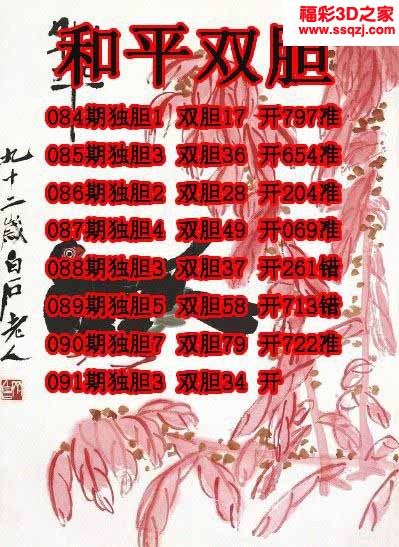 福彩3D之家
www.ssqzj.com
和平双胆
084期独胆1 双胆17 开797准
085期独胆3 双胆36 开654准
086期独胆2 双胆28 开204准
087期独胆4 双胆49 开069准
088期独胆3 双胆37 开261错
089期独胆5 双胆58 开713错
090期独胆7 双胆79 开722准
091期独胆3 双胆34 开
九十二岁白石老人